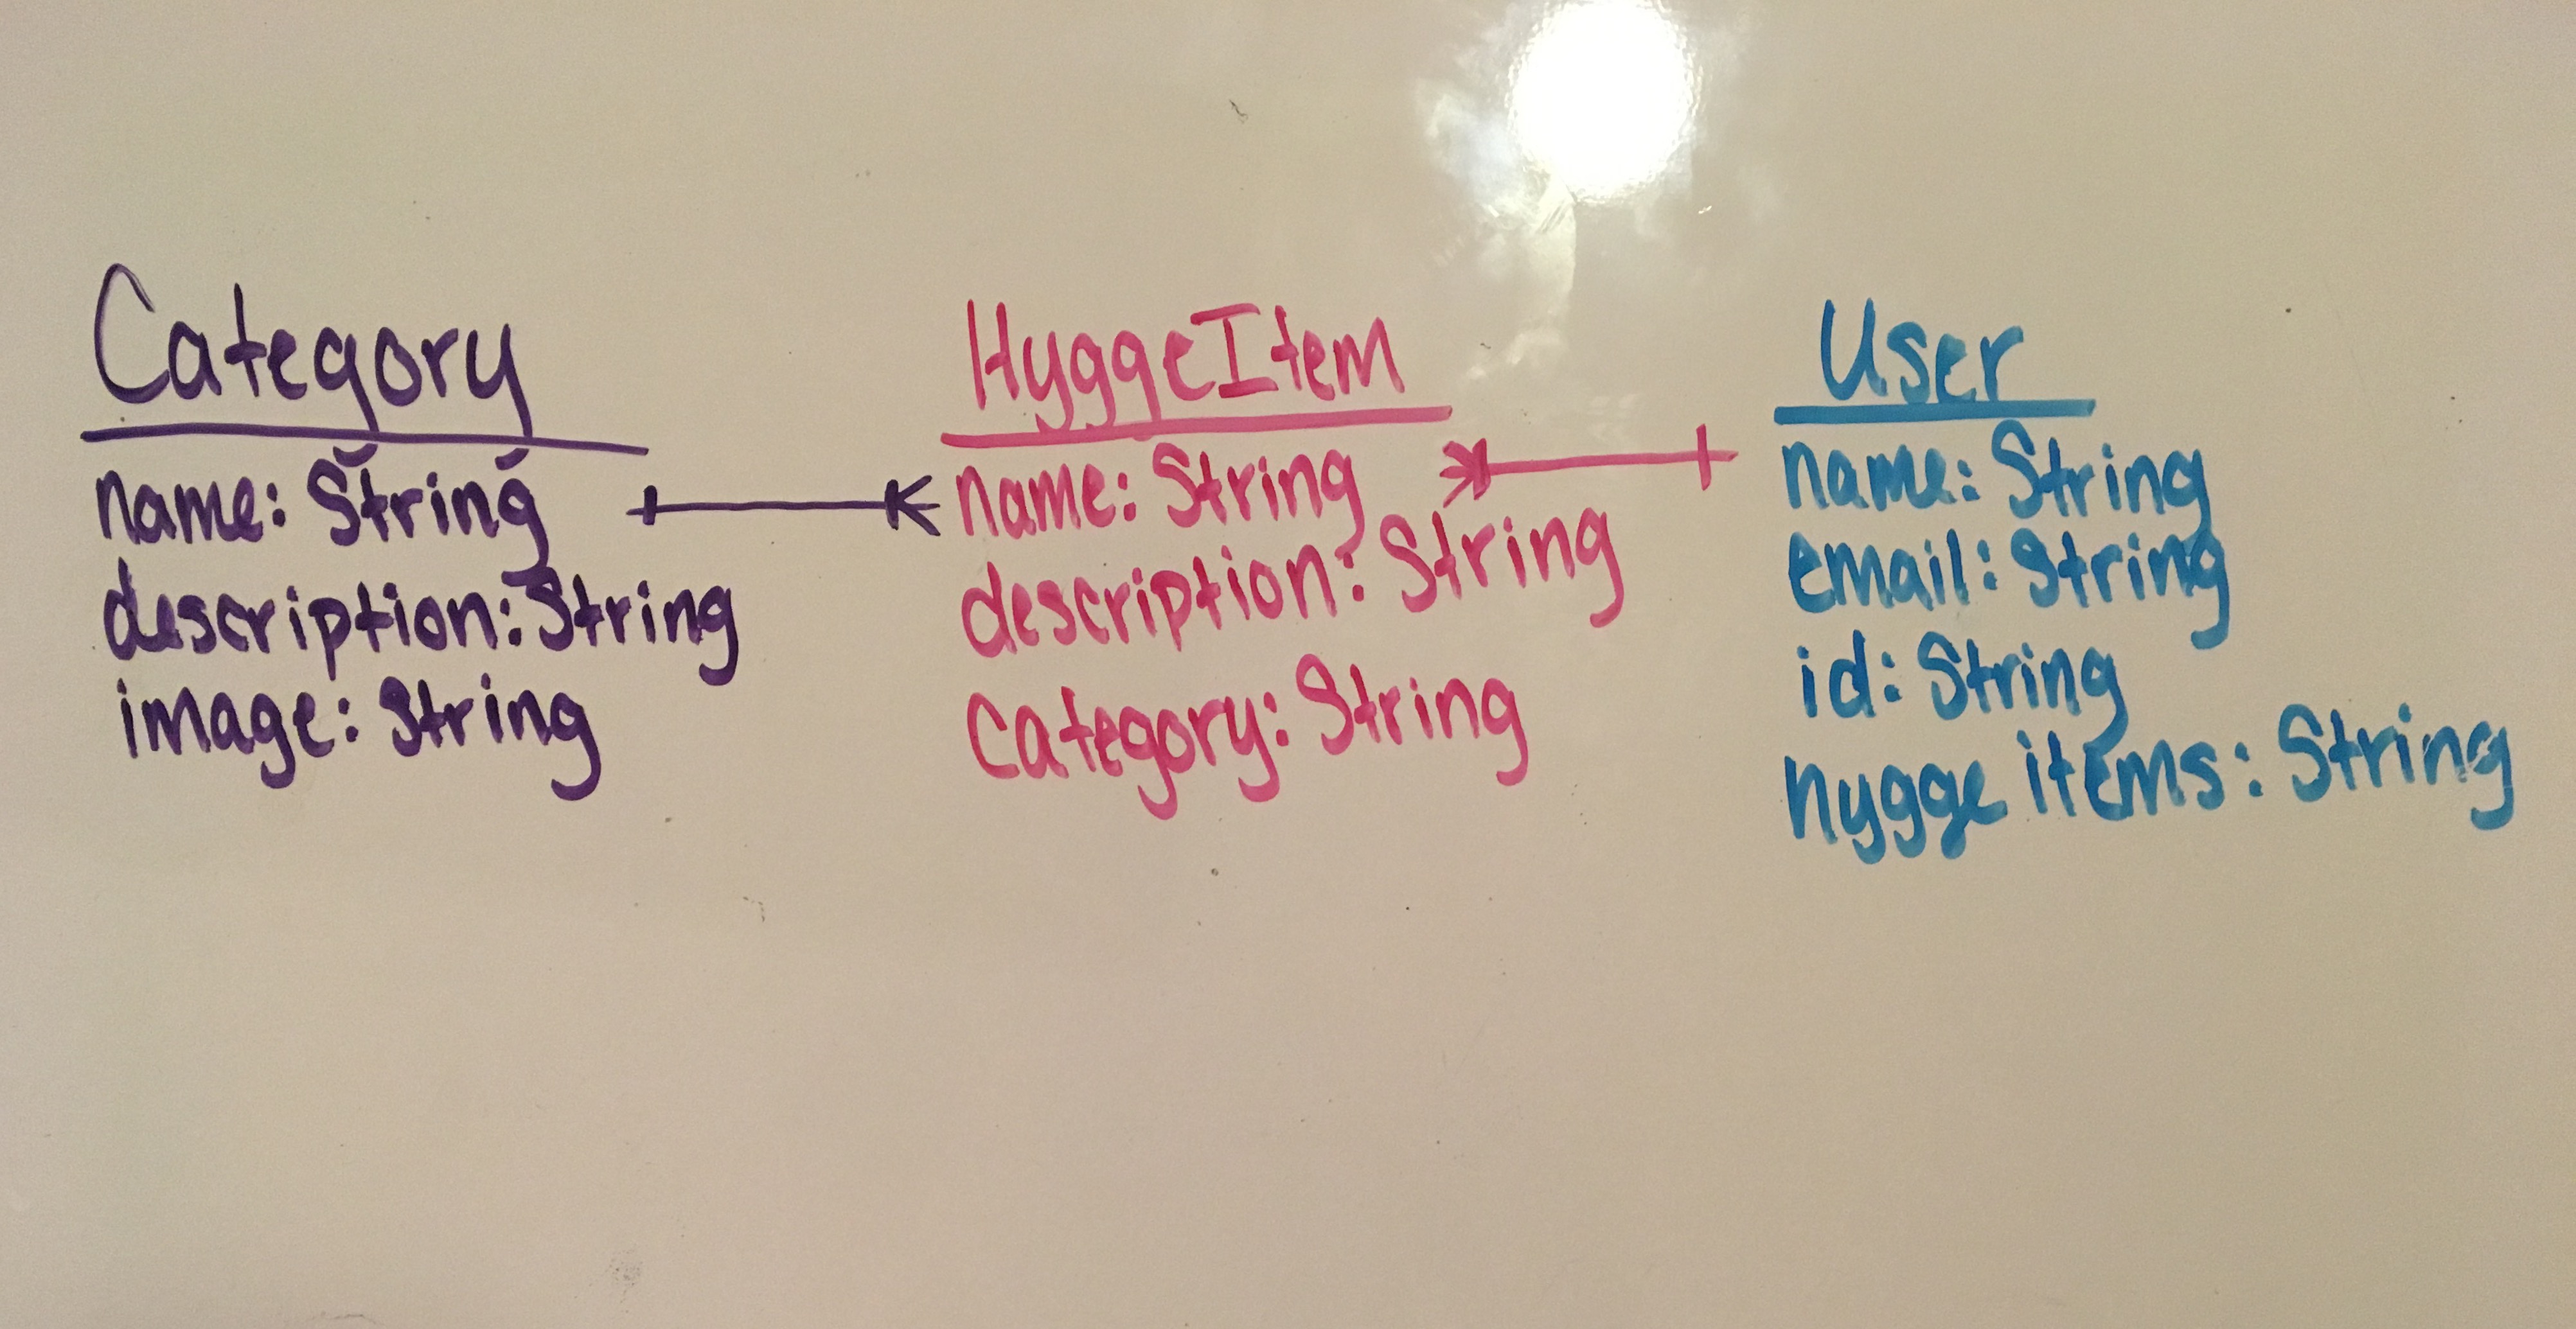 Category
name: String
description: String
image: String
HyggeItem
name: String
description: String
Category: String
User
name: String
email: String
id: String
hygge items: String